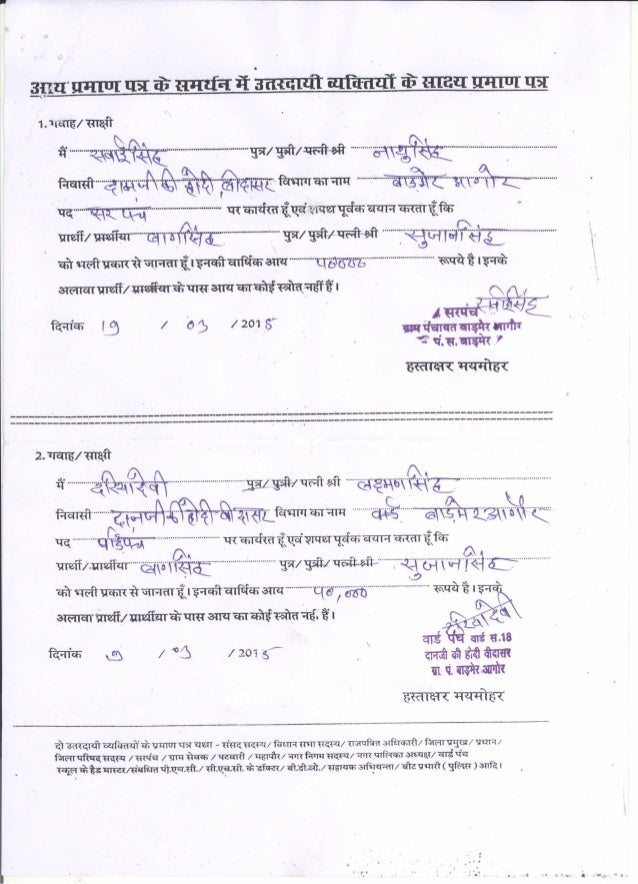 आय प्रमाण पत्र के समर्थन में उतरदायी व्यक्तियों के साक्ष्य प्रमाण पत्र
1. गवाह/ साक्षी
मैं सवाईसिंह पुत्र/ पुत्री/ पत्नी श्री नाथुसिंह
निवासी दानजी की होदी, वीदासर विभाग का नाम बाडमेर आगोर
पद सरपंच पर कार्यरत हूँ एवं शपथ पूर्वक बयान करता हूँ कि
प्रार्थी/ प्रार्थीया बागसिंह पुत्र/ पुत्री/ पत्नी श्री सुजानसिंह
को भली प्रकार से जानता हूँ। इनकी वार्षिक आय ५०००० रूपये है। इनके
अलावा प्रार्थी/ प्रार्थीया के पास आय का कोई स्त्रोत नहीं हैं।
दिनांक 19 / 03 / 2015
सरपंच
ग्राम पंचायत बाड़मेर आगौर
पं. स. बाड़मेर
हस्ताक्षर मयमोहर
2. गवाह/ साक्षी
मैं दरियादेवी पुत्र/ पुत्री/ पत्नी श्री लक्ष्मणसिंह
निवासी दानजी की होदी वीदासर विभाग का नाम वार्ड बाड़मेर आगोर
पद वार्डपंच पर कार्यरत हूँ एवं शपथ पूर्वक बयान करता हूँ कि
प्रार्थी/ प्रार्थीया बागसिंह पुत्र/ पुत्री/ पत्नी श्री सुजानसिंह
को भली प्रकार से जानता हूँ। इनकी वार्षिक आय ५०,००० रूपये है। इनके
अलावा प्रार्थी/ प्रार्थीया के पास आय का कोई स्त्रोत नहं. हैं।
दरियादेवी
दिनांक 9 / 03 / 2015
वार्ड पंच वार्ड स.18
दानजी की होदी वीदासर
ग्रा. पं. बाड़मेर आगोर
हस्ताक्षर मयमोहर
दो उतरदायी व्यक्तियों के प्रमाण पत्र यथा - संसद सदस्य/ विधान सभा सदस्य/ राजपत्रित अधिकारी/ जिला प्रमुख/ प्रधान/
जिला परिषद् सदस्य / सरपंच / ग्राम सेवक / पटवारी / महापौर/ नगर निगम सदस्य/ नगर पालिका अध्यक्ष/ वार्ड पंच
स्कूल के हैड मास्टर/संबधित पी.एच.सी./ सी.एच.सी. के डॉक्टर/ बी.डी.ओ./ सहायक अभियन्ता/ बीट प्रभारी ( पुलिस ) आदि।